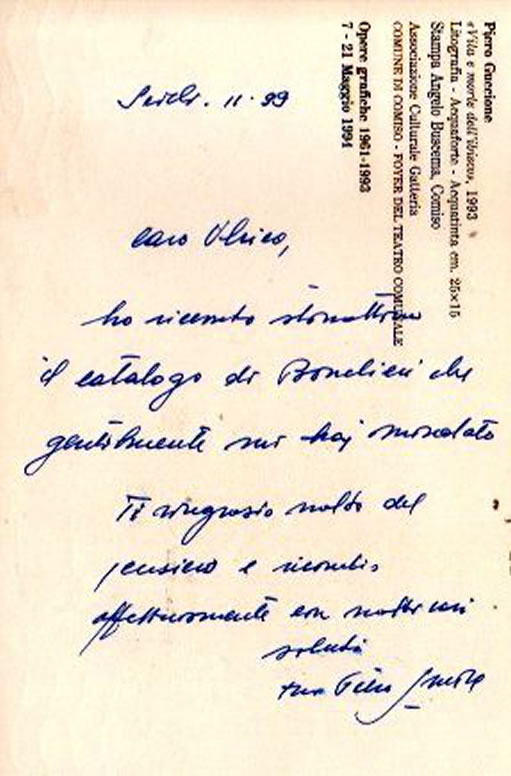 Piero Guccione
«Vita e morte dell'ibisco», 1993
Litografia - Acquaforte - Acquatinta cm. 25×15
Stampa Angelo Buscema, Comiso
Associazione Culturale Gatteria
COMUNE DI COMISO - FOYER DEL TEATRO COMUNALE
Opere grafiche 1961-1993
7 - 21 Maggio 1994
Scicli. 11.99
caro
ho ricevuto stamattina
il catalogo di che
gentilmente mi hai mandato
Ti ringrazio molto del
pensiero e
affettuosamente con
saluti
tuo Piero Guccione